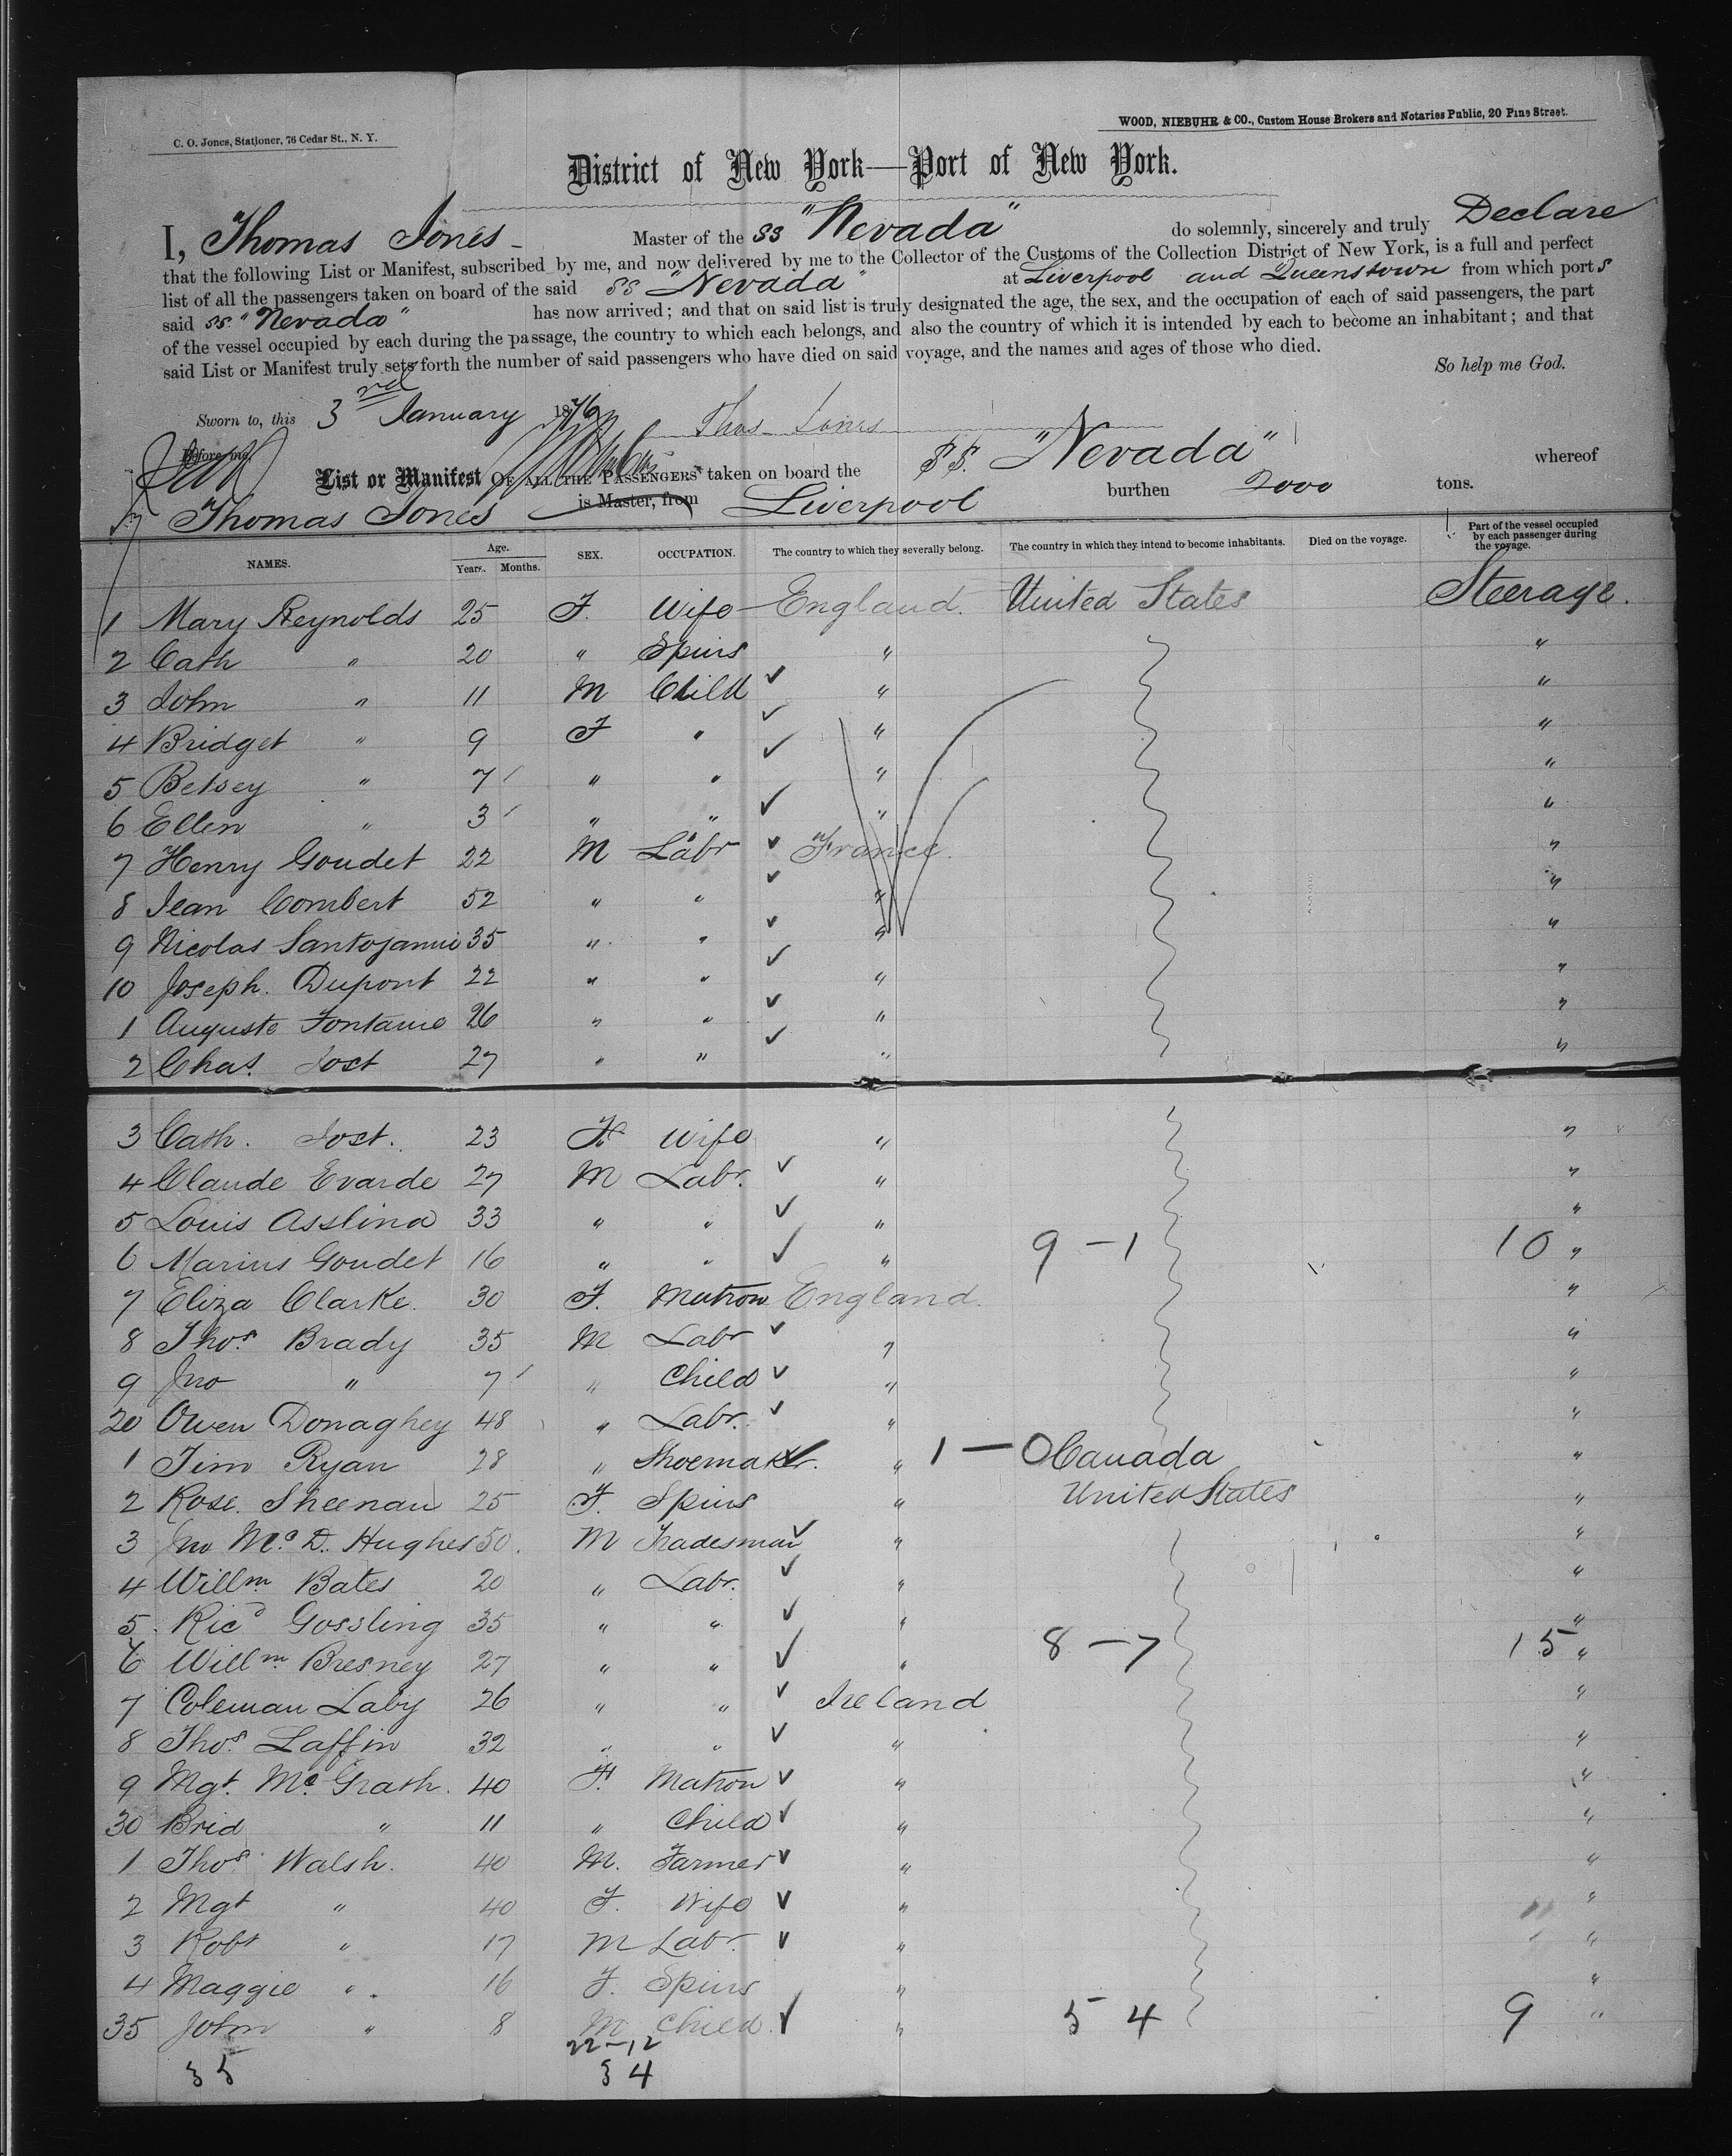 C. O. Jones, Stationer, 76 Cedar St., N. Y.
WOOD, NIEBUHR & CO., Custom House Brokers and Notaries Public, 20 Pine Street.
District of New York—Port of New York.
I, Thomas Jones Master of the SS "Nevada" do solemnly, sincerely and truly Declare
that the following List or Manifest, subscribed by me, and now delivered by me to the Collector of the Customs of the Collection District of New York, is a full and perfect
list of all the passengers taken on board of the said SS "Nevada" at Liverpool and Queenstown from which ports
said SS. "Nevada" has now arrived; and that on said list is truly designated the age, the sex, and the occupation of each of said passengers, the part
of the vessel occupied by each during the passage, the country to which each belongs, and also the country of which it is intended by each to become an inhabitant; and that
said List or Manifest truly sets forth the number of said passengers who have died on said voyage, and the names and ages of those who died.
So help me God.
Sworn to, this 3rd January 1876 Thos Jones
Before me,
List or Manifest OF ALL THE PASSENGERS taken on board the SS. "Nevada" whereof
Thomas Jones is Master, from Liverpool burthen 2000 tons.
NAMES. Age. Years. Months. SEX. OCCUPATION. The country to which they severally belong. The country in which they intend to become inhabitants. Died on the voyage. Part of the vessel occupied by each passenger during the voyage.
1 Mary Reynolds 25 F. Wife England. United States Steerage.
2 Cath " 20 " Spins " "
3 John " 11 M Child " "
4 Bridget " 9 F " " "
5 Betsey " 7 " " " "
6 Ellen " 3 " " " "
7 Henry Goudet 22 M Labr France "
8 Jean Combert 52 " " " "
9 Nicolas 35 " " " "
10 Joseph. Dupont 22 " " " "
1 Auguste Fontaine 26 " " " "
2 Chas. Jost 27 " " " "
3 Cath. Jost. 23 F. Wife " "
4 Claude Evarde 27 M Labr. " "
5 Louis Asslina 33 " " " "
6 Marius Goudet 16 " " " 9 - 1 10 "
7 Eliza Clarke. 30 F. Matron England. "
8 Thos. Brady 35 M Labr " "
9 Jno " 7 " Child " "
20 Owen Donaghey 48 " Labr. " "
1 Tim Ryan 28 " Shoemakr. " 1 - 0 Canada "
2 Rose. Sheenan 25 F. Spins " United States "
3 Jno Mc. D. Hughes 50. M Tradesman " "
4 Willm. Bates 20 " Labr. " "
5. Ricd Gossling 35 " " " "
6 Willm. Bresney 27 " " " 8 - 7 15 "
7 Coleman Laby 26 " " Ireland "
8 Thos. Laffin 32 " " " "
9 Mgt. Mc. Grath. 40 F. Matron " "
30 Brid " 11 " Child " "
1 Thos. Walsh. 40 M. Farmer " "
2 Mgt " 40 F. Wife " "
3 Robt " 17 M Labr. " "
4 Maggie " 16 F. Spins " "
35 John " 8 M Child " 5 4 9 "
22-12
35 34